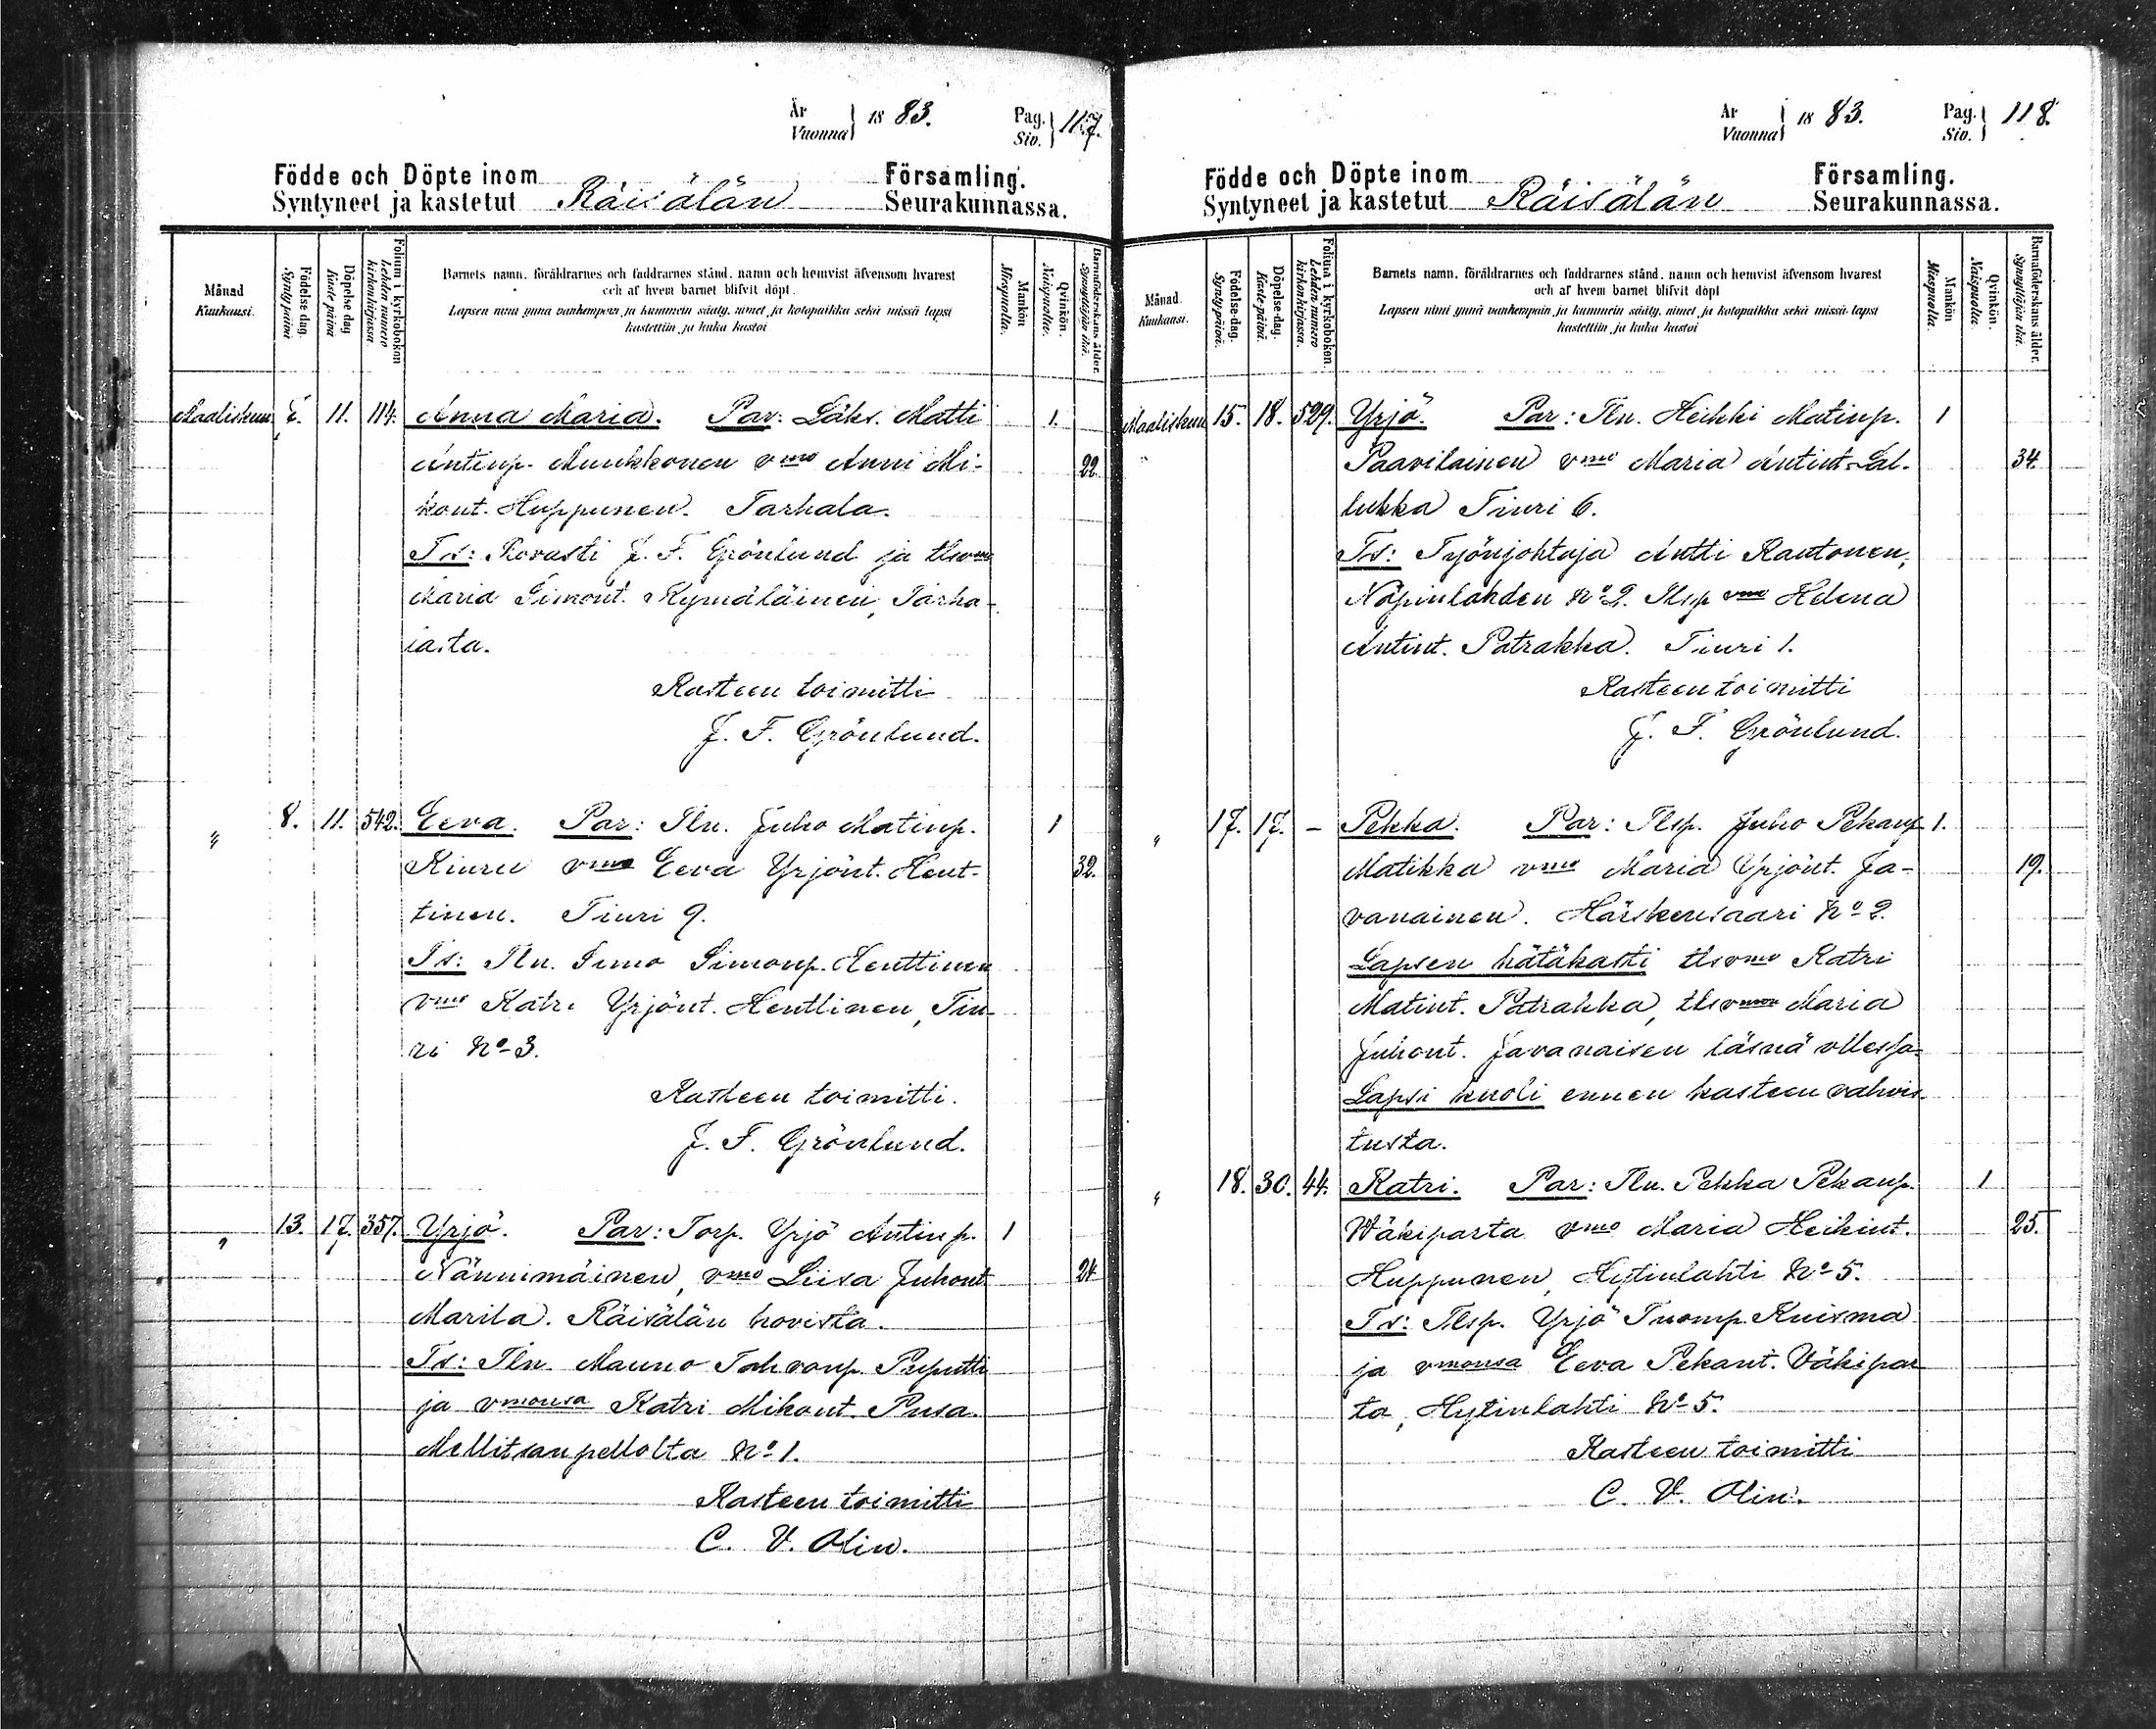 År Vuonna 1883.
Pag. Siv. 117.
Födde och Döpte inom Församling.
Syntyneet ja kastetut Räisälän Seurakunnassa.
Månad Kuukausi.
Födelse-dag. Syntypäivä
Döpelse-dag Kaste päivä
Folium i kyrkoboken Lehden numero kirkonkirjassa.
Barnets namn, föräldrarnes och faddrarnes stånd, namn och hemvist äfvensom hvarest
och af hvem barnet blifvit döpt.
Lapsen nimi ynnä vanhempain ja kummein sääty, nimet ja kotopaikka sekä missä lapsi
kastettiin ja kuka kastoi
Mankön Miespuolta.
Qvinkön. Naispuolta.
Barnaföderskans ålder. Synnyttäjän ikä.
Maaliskuu 11. 114. Anna Maria. Par: Läks. Matti 1.
Antinp. Munkkonen vmo Anni Mi- 22.
kont. Huppunen. Tarhala.
Ts: Rovasti J. F. Grönlund ja tlsvmo
Maria Simont. Kymäläinen, Tarha-
lasta.
Kasteen toimitti
J. F. Grönlund.
" 8. 11. 542. Eeva. Par: Tln. Juho Matinp. 1
Kiuru vmo Eeva Yrjönt. Hent- 32.
tinen. Tiuri 9.
Ts: Tln. Simo Simonp. Henttinen
vmo Katri Yrjönt. Henttinen, Tiu-
ri No 3.
Kasteen toimitti.
J. F. Grönlund.
" 13. 17. 357. Yrjö. Par: Torp. Yrjö Antinp. 1
Nännimäinen, vmo Liisa Juhont. 24
Marila. Räisälän hovista.
Ts: Tln. Mauno Tahvonp. Puputti
ja vmonsa Katri Mikont. Pusa.
Mellitsanpellolta No 1.
Kasteen toimitti
C. V. Olin.
År Vuonna 1883.
Pag. Siv. 118.
Födde och Döpte inom Församling.
Syntyneet ja kastetut Räisälän Seurakunnassa.
Månad. Kuukausi.
Födelse-dag. Syntypäivä.
Döpelse-dag. Kaste-päivä.
Folium i kyrkoboken. Lehden numero kirkonkirjassa.
Barnets namn, föräldrarnes och faddrarnes stånd, namn och hemvist äfvensom hvarest
och af hvem barnet blifvit döpt
Lapsen nimi ynnä vanhempain ja kummein sääty, nimet ja kotopaikka sekä missä lapsi
kastettiin ja kuka kastoi
Mankön Miespuolta.
Qvinkön. Naispuolta.
Barnaföderskans ålder. Synnyttäjän ikä.
Maaliskuu 15. 18. 529. Yrjö. Par: Tln. Heikki Matinp. 1
Paavilainen vmo Maria Antint. Lal- 34.
lukka Tiuri 6.
Ts: Työnjohtaja Antti Rautonen,
Näpinlahden No 2. Tlsp vmo Helena
Antint. Patrakka. Tiuri 1.
Kasteen toimitti
J. F. Grönlund.
" 17. 17. - Pekka. Par: Tlsp. Juho Pekanp 1.
Matikka vmo Maria Yrjönt. Ja- 19.
vanainen. Härskensaari No 2.
Lapsen hätäkasti tlsvmo Katri
Matint. Patrakka, tlsvmon Maria
Juhont. Javanaisen läsnä ollessa-
Lapsi kuoli ennen kasteen vahvis-
tusta.
" 18. 30. 44. Katri. Par: Tln. Pekka Pekanp. 1
Wäkiparta vmo Maria Heikint. 25.
Huppunen, Hytinlahti No 5.
Ts: Tlsp. Yrjö Tuomp. Kuisma
ja vmonsa Eeva Pekant. Väkipar
ta, Hytinlahti No 5.
Kasteen toimitti
C. V. Olin.